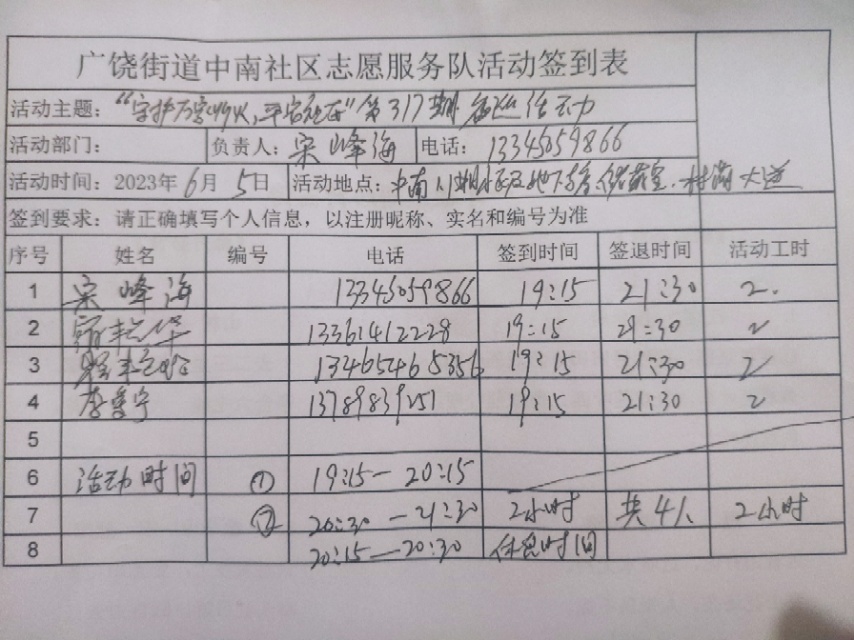 广饶街道中南社区志愿服务队活动签到表
活动主题：“守护万家灯火,平安社区”第317期 巡逻活动
活动部门： 负责人：宋峰海 电话：13345059866
活动时间：2023年6月5日 活动地点：中南
签到要求：请正确填写个人信息，以注册昵称、实名和编号为准
序号 姓名 编号 电话 签到时间 签退时间 活动工时
1 宋峰海 13345059866 19:15 21:30 2.
2 13361412228 19:15 21:30 2
3 13465465356 19:15 21:30 2
4 李 宁 13789839251 19:15 21:30 2
5
6 活动时间 ① 19:15—20:15
7 ② 20:30—21:30 2小时 共4人 2小时
8 20:15—20:30 休息时间